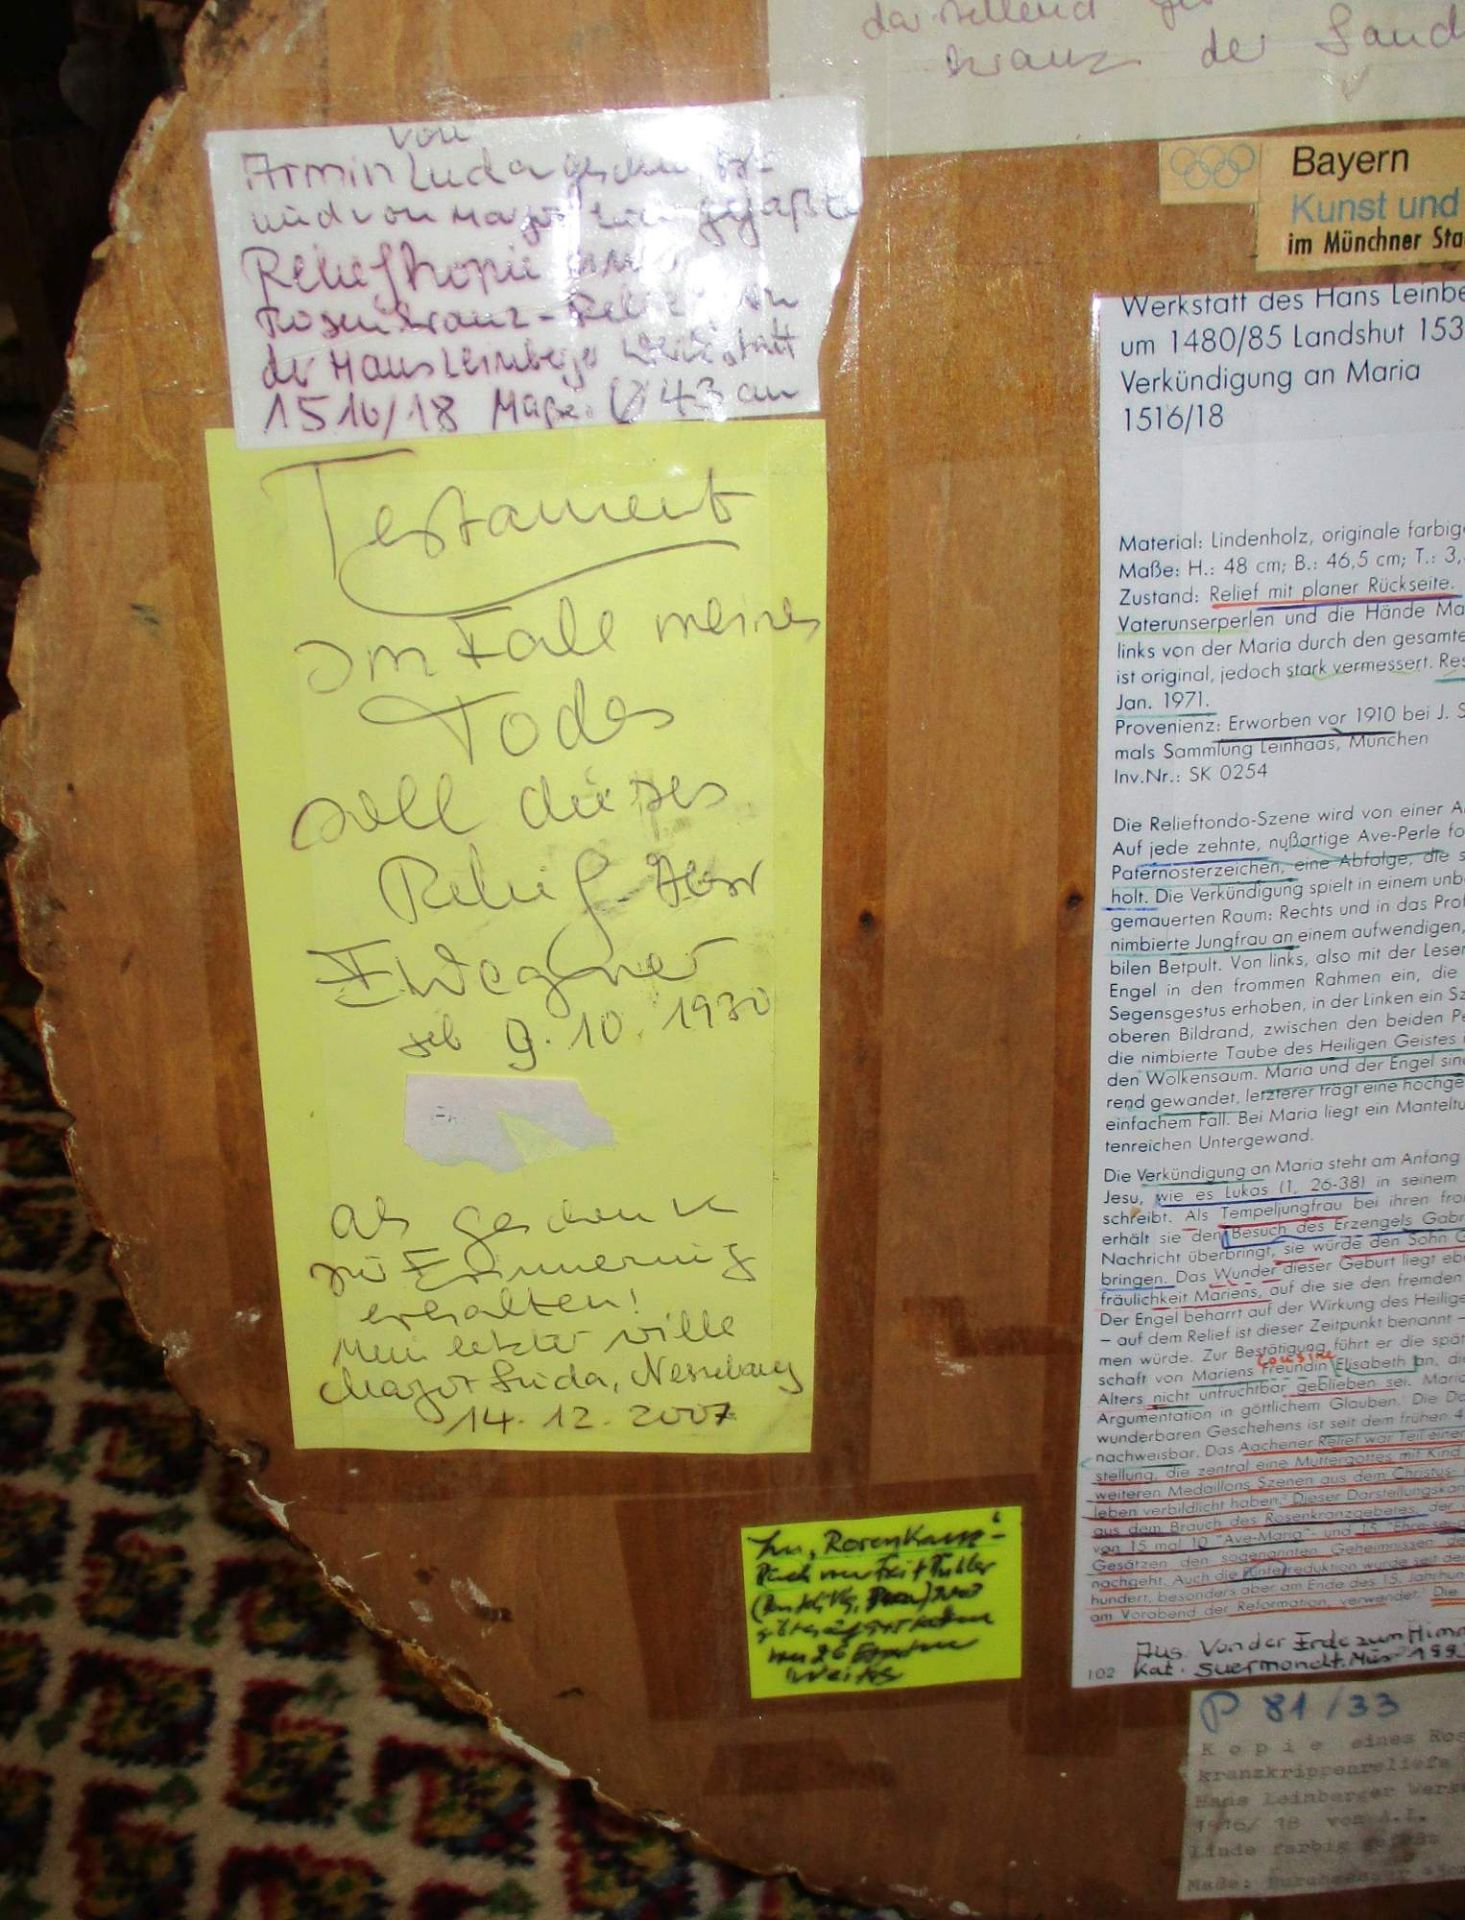 darstellend
kranz der Land
von
Armin Luda
und von Major gefaßte
Reliefkopie
Rosenkranz-Relief
der Hans Leinberger Werkstatt
1516/18 Maße: 43 cm
Testament
Im Fall meines
Todes
soll dieses
Relief Herr
F Wegner
geb 9.10.1930
als Geschenk
zur Erinnerung
erhalten!
Mein letzter Wille
Major Luda,
14.12.2007
Bayern
Kunst und
im Münchner Sta
Werkstatt des Hans Leinbe
um 1480/85 Landshut 153
Verkündigung an Maria
1516/18
Material: Lindenholz, originale farbige
Maße: H.: 48 cm; B.: 46,5 cm; T.: 3,
Zustand: Relief mit planer Rückseite.
Vaterunserperlen und die Hände Ma
links von der Maria durch den gesamte
ist original, jedoch stark vermessert. Res
Jan. 1971.
Provenienz: Erworben vor 1910 bei J. S
mals Sammlung Leinhaas, München
Inv.Nr.: SK 0254
Die Relieftondo-Szene wird von einer A
Auf jede zehnte, nußartige Ave-Perle fo
Paternosterzeichen, eine Abfolge, die s
holt. Die Verkündigung spielt in einem unb
gemauerten Raum: Rechts und in das Prof
nimbierte Jungfrau an einem aufwendigen,
bilen Betpult. Von links, also mit der Leser
Engel in den frommen Rahmen ein, die
Segensgestus erhoben, in der Linken ein Sz
oberen Bildrand, zwischen den beiden Pe
die nimbierte Taube des Heiligen Geistes
den Wolkensaum. Maria und der Engel sind
rend gewandet, letzterer trägt eine hochge
einfachem Fall. Bei Maria liegt ein Manteltu
tenreichen Untergewand.
Die Verkündigung an Maria steht am Anfang
Jesu, wie es Lukas (1, 26-38) in seinem
schreibt. Als Tempeljungfrau bei ihren fro
erhält sie den Besuch des Erzengels Gabr
Nachricht überbringt, sie würde den Sohn G
bringen. Das Wunder dieser Geburt liegt eb
fräulichkeit Mariens, auf die sie den fremden
Der Engel beharrt auf der Wirkung des Heilige
– auf dem Relief ist dieser Zeitpunkt benannt –
men würde. Zur Bestätigung führt er die spät
Cousine
schaft von Mariens Freundin Elisabeth an, die
Alters nicht unfruchtbar geblieben sei. Maria
Argumentation in göttlichem Glauben. Die Da
wunderbaren Geschehens ist seit dem frühen 4
nachweisbar. Das Aachener Relief war Teil einer
stellung, die zentral eine Muttergottes mit Kind
weiteren Medaillons Szenen aus dem Christus-
leben verbildlicht haben. Dieser Darstellungskan
aus dem Brauch des Rosenkranzgebetes, der
von 15 mal 10 "Ave-Maria"- und 15 "Ehre-sei-
Gesätzen den sogenannten Geheimnissen de
nachgeht. Auch die Fünferreduktion wurde seit de
hundert, besonders aber am Ende des 15. Jahrhun
am Vorabend der Reformation, verwendet. Die
Aus. Von der Erde zum Himm
102 Kat. Suermondt. Mus 199
P 81/33
Kopie eines Ros
kranzkrippenreliefs
Hans Leinberger Werk
1516/18 von A.L.
Linde farbig gefaßt
Maße: